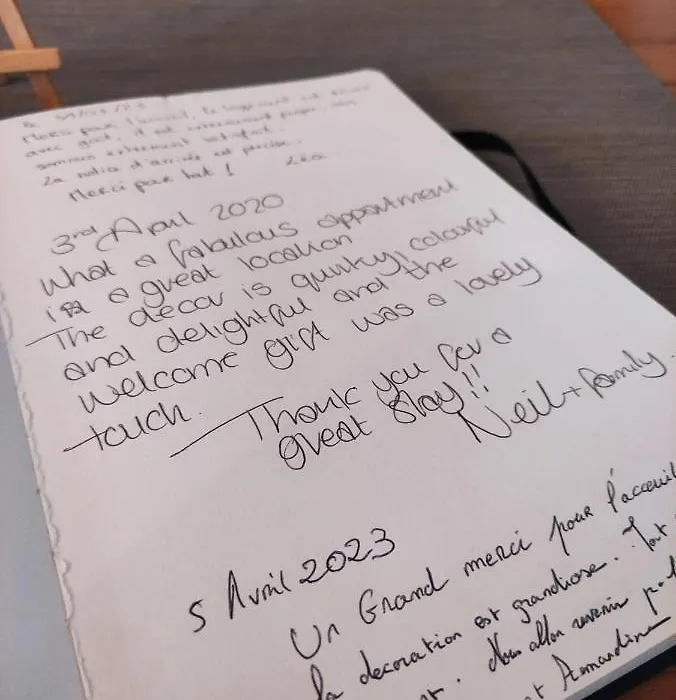 31/03/23
Merci pour l'accueil, le logement est décoré
avec goût, il est extrêmement propre. Nous
sommes extrêmement satisfait.
La notia d'arrivée est précise.
Merci pour tout ! Léa
3rd April 2020
What a fabulous appartment
in a great location
The decor is quirky, colourful
and delightful and the
welcome gift was a lovely
touch.
Thank you for a
great stay!!
Neil + family.
5 Avril 2023
Un Grand merci pour l'acceuil
la decoration est grandiose. Tout
Nous allon revenir
Amandine